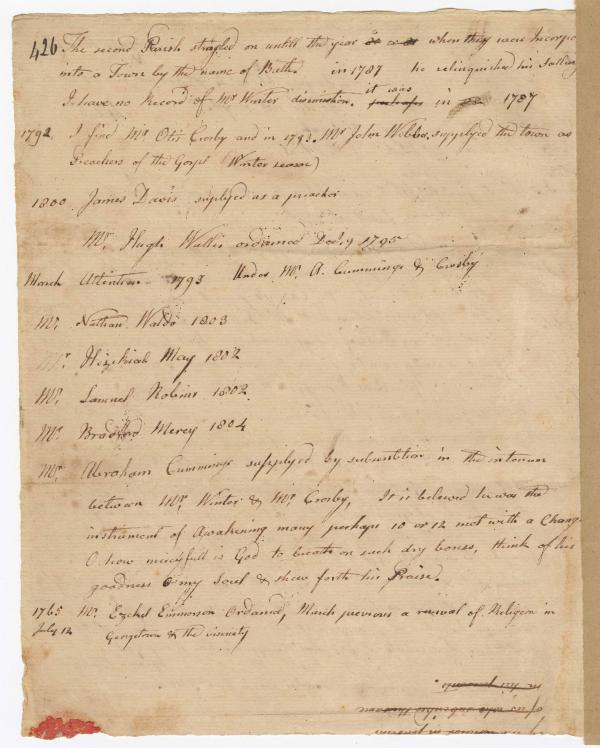 426 The second Parish stragled on untill the year when they were Incorpo
into a Town by the name of Bath in 1787 he relinquished his Sallery
I have no Record of Mr Winter dismistion. it was perhaps in 1787
1792. I find Mr Otis Crosby and in 1793. Mr John Webber. supplyed the town as
Preachers of the Gospl Winter season)
1800 James Davis suplyed as a preacher
Mr. Hugh Wallis ordained Dec. 9 1795
March Attention 1793 Under Mr. A. Cummings & Crosby
Mr. Nathan Waldo 1803
Mr Hezekiah May 1802
Mr. Samuel Robins 1802.
Mr. Bradford Mercy 1804
Mr. Abraham Cummings supplyed by subscribtion in the interum
between Mr. Winter & Mr. Crosby, It is beleved he was the
instrument of Awakening many perhaps 10 or 12 met with a Change
O how mercifull is God to breath on such dry bones, think of his
goodness O my Soul & shew forth his Praise.
1765 Mr. Ezekel Emmorson Ordaind, March previous a revival of Religion in
July 12 Georgetown & the viscenety